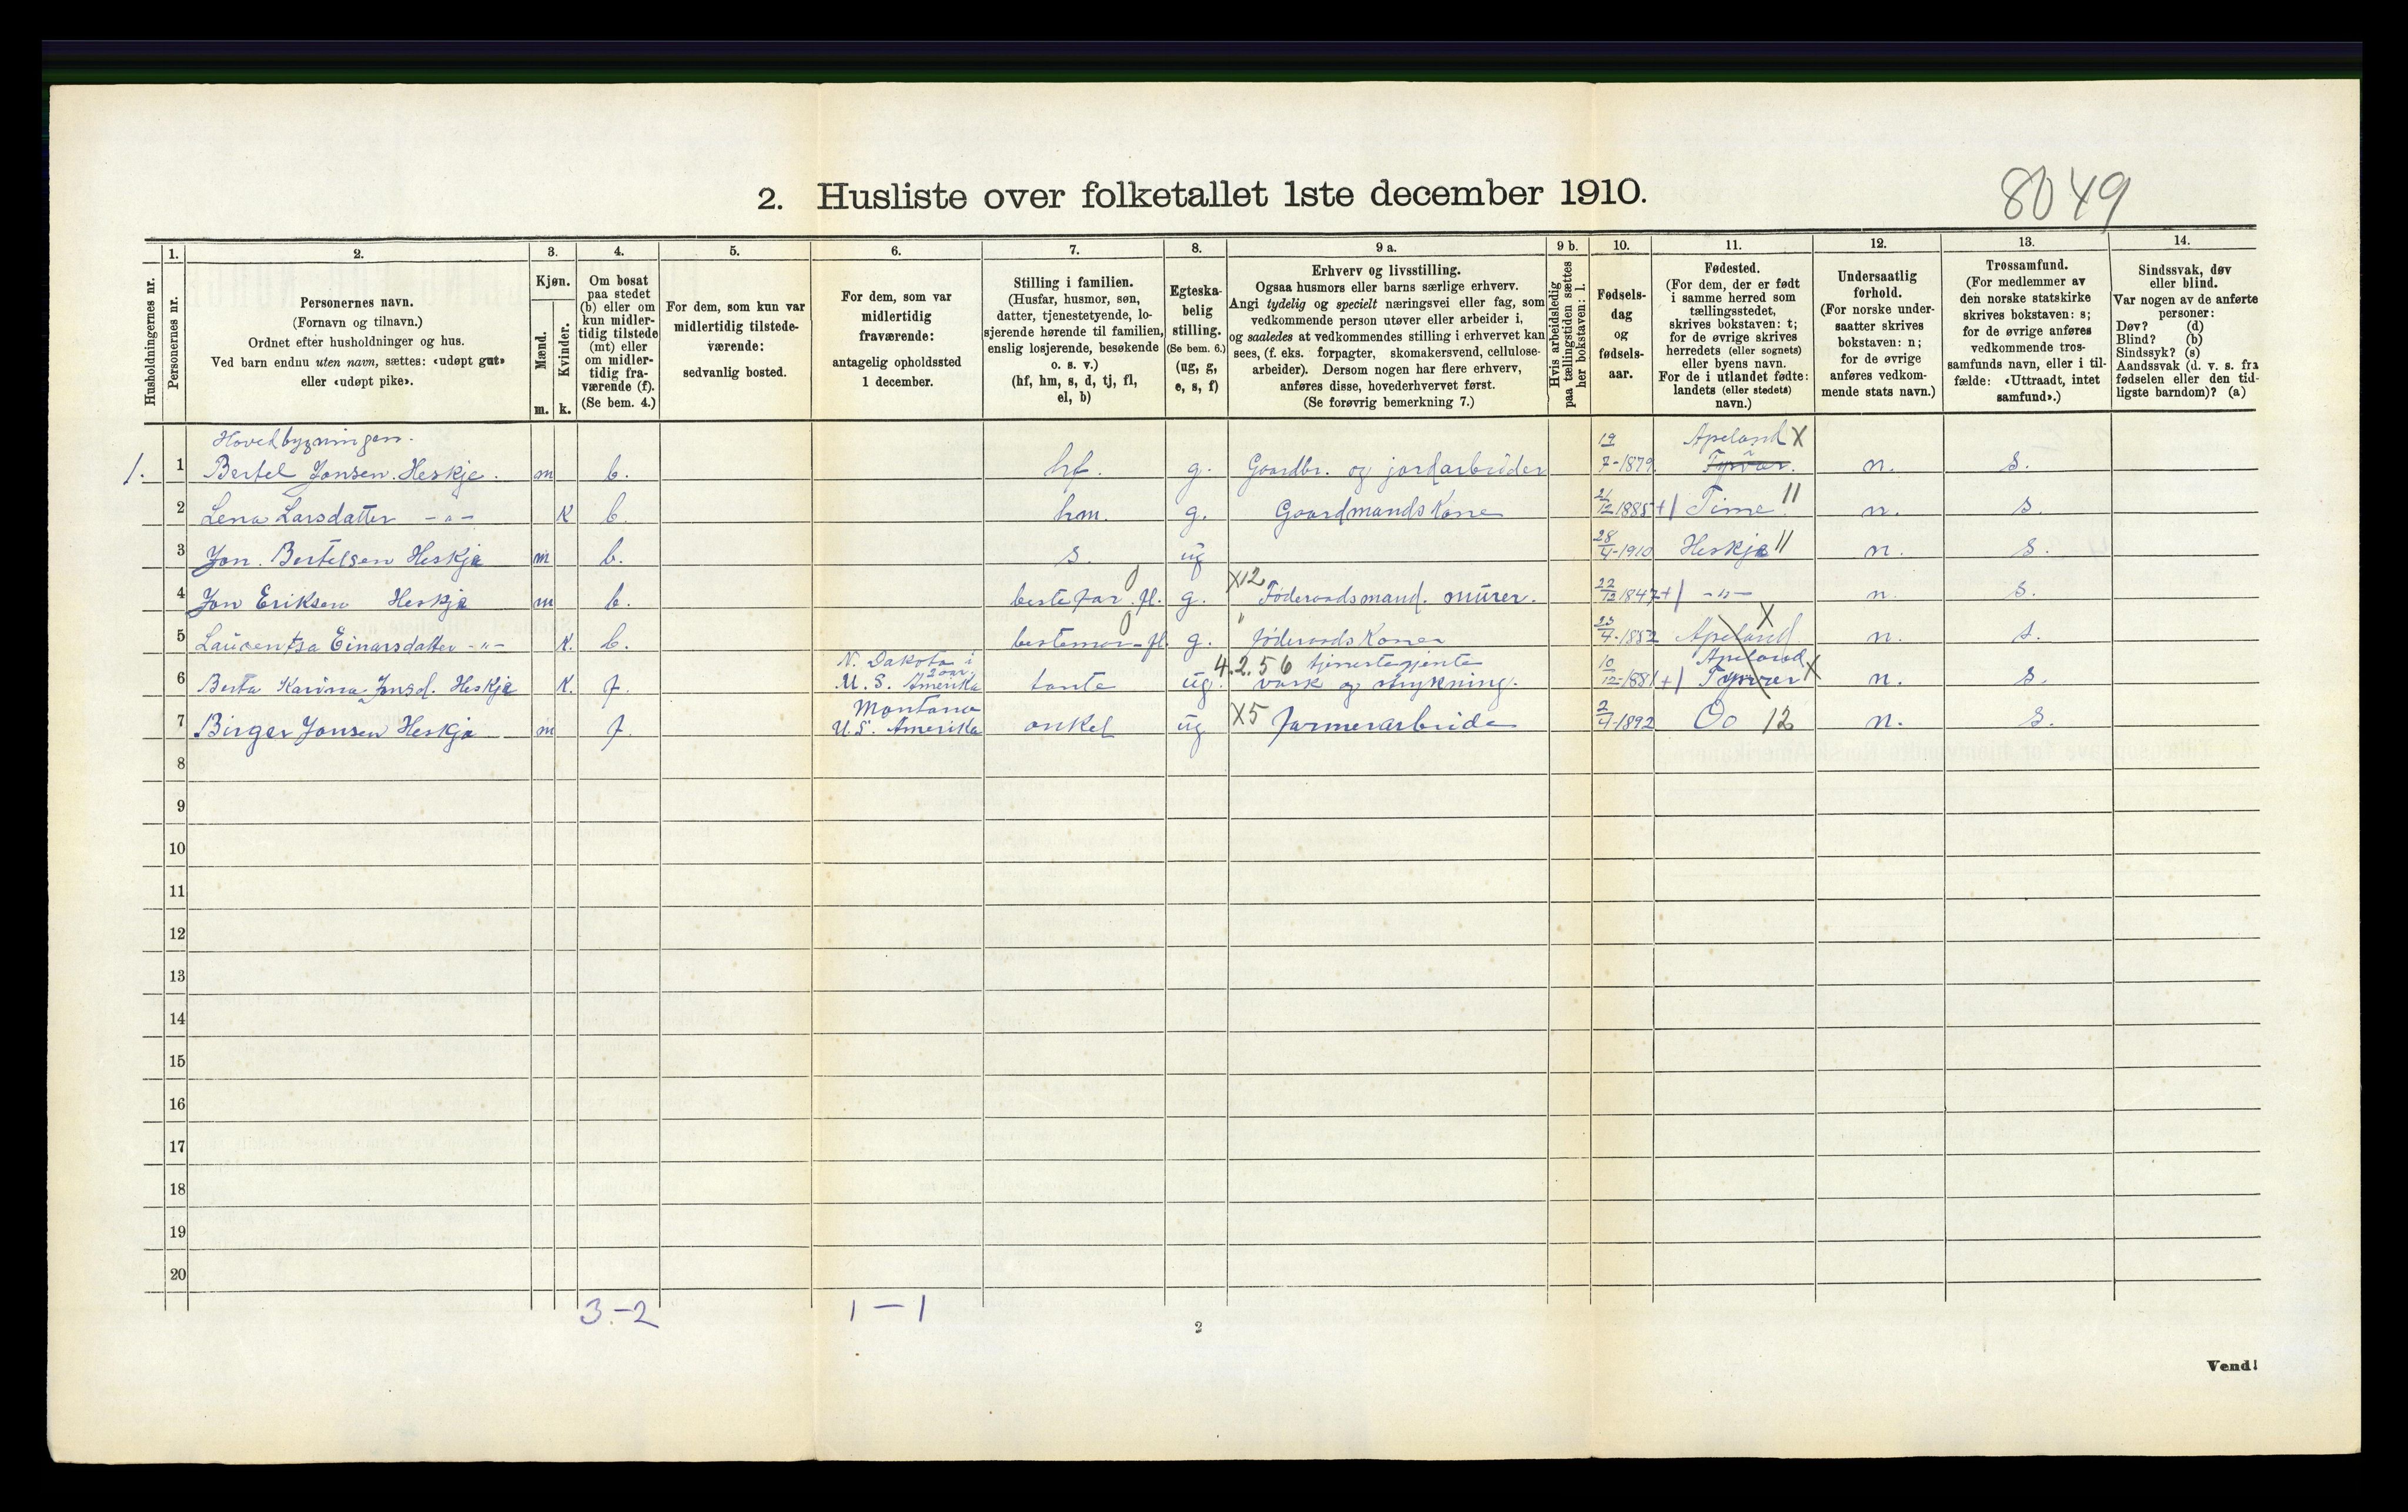 8049
2. Husliste over folketallet 1ste december 1910.
Husholdningernes nr.
1.
Personernes nr.
2.
Personernes navn.
(Fornavn og tilnavn.)
Ordnet efter husholdninger og hus.
Ved barn endnu uten navn, sættes: «udøpt gut»
eller «udøpt pike».
3.
Kjøn.
Mænd.
Kvinder.
m.
k.
4.
Om bosat
paa stedet
(b) eller om
kun midler-
tidig tilstede
(mt) eller
om midler-
tidig fra-
værende (f).
(Se bem. 4.)
5.
For dem, som kun var
midlertidig tilstede-
værende:
sedvanlig bosted.
6.
For dem, som var
midlertidig
fraværende:
antagelig opholdssted
1 december.
7.
Stilling i familien.
(Husfar, husmor, søn,
datter, tjenestetyende, lo-
sjerende hørende til familien,
enslig losjerende, besøkende
o. s. v.)
(hf, hm, s, d, tj, fl,
el, b)
8.
Egteska-
belig
stilling.
(Se bem. 6.)
(ug, g,
e, s, f)
9 a.
Erhverv og livsstilling.
Ogsaa husmors eller barns særlige erhverv.
Angi tydelig og specielt næringsvei eller fag, som
vedkommende person utøver eller arbeider i,
og saaledes at vedkommendes stilling i erhvervet kan
sees, (f. eks. forpagter, skomakersvend, cellulose-
arbeider). Dersom nogen har flere erhverv,
anføres disse, hovederhvervet først.
(Se forøvrig bemerkning 7.)
9 b.
Hvis arbeidsledig
paa tællingstiden sættes
her bokstaven: l.
10.
Fødsels-
dag
og
fødsels-
aar.
11.
Fødested.
(For dem, der er født
i samme herred som
tællingsstedet,
skrives bokstaven: t;
for de øvrige skrives
herredets (eller sognets)
eller byens navn.
For de i utlandet fødte:
landets (eller stedets)
navn.)
12.
Undersaatlig
forhold.
(For norske under-
saatter skrives
bokstaven: n;
for de øvrige
anføres vedkom-
mende stats navn.)
13.
Trossamfund.
(For medlemmer av
den norske statskirke
skrives bokstaven: s;
for de øvrige anføres
vedkommende tros-
samfunds navn, eller i til-
fælde: «Uttraadt, intet
samfund».)
14.
Sindssvak, døv
eller blind.
Var nogen av de anførte
personer:
Døv? (d)
Blind? (b)
Sindssyk? (s)
Aandssvak (d. v. s. fra
fødselen eller den tid-
ligste barndom)? (a)
Hovedbygningen.
1. 1 Bertel Jonsen Heskje. m b. hf. g. Gaardbr. og jordarbeider 19/7-1879 Apeland X Tysvær. n. s.
2 Lena Larsdatter -"- K b. hm. g. Gaardmands Kone 12 1885 +) Time 11 n. s.
3 Jon. Bertelsen Heskje m b. s. ug 28/4-1910 Heskje 11 n. s.
4 Jon Eriksen Heskje m b. bestefar. fl. g. X12 Føderaadsmand. murer. 1847 +) -"- n. s.
5 Einarsdatter -"- K. b. bestemor - fl. g. " føderaads Kone Apeland X n. s.
6 Berta Karina Jonsd. Heskje K. f. N. Dakota i U. S. Amerika tante ug. 4.2.56 tjenestepjente vask og strykning. 10/12-1881 +) Apeland X Tysvær n. s.
7 Birger Jonsen Heskje m f. Montana U.S. Amerika onkel ug X5 farmerarbeide 2/4-1892 Do 12 n. s.
8
9
10
11
12
13
14
15
16
17
18
19
20
3-2 1-1
2
Vend!